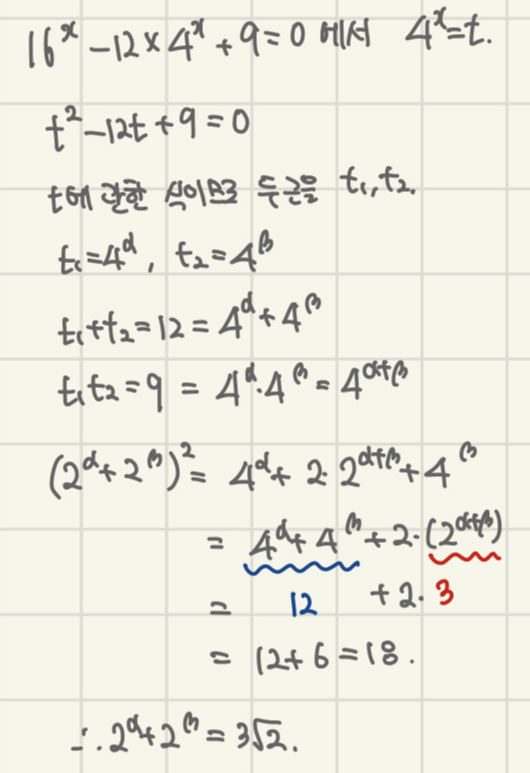 16^x - 12 × 4^x + 9 = 0 에서 4^x = t.
t² - 12t + 9 = 0
t에 관한 식이므로 두근을 t₁, t₂.
t₁ = 4^α, t₂ = 4^β
t₁ + t₂ = 12 = 4^α + 4^β
t₁t₂ = 9 = 4^α · 4^β = 4^(α+β)
(2^α + 2^β)² = 4^α + 2 · 2^(α+β) + 4^β
= 4^α + 4^β + 2 · (2^(α+β))
= 12 + 2 · 3
= 12 + 6 = 18.
∴ 2^α + 2^β = 3√2.